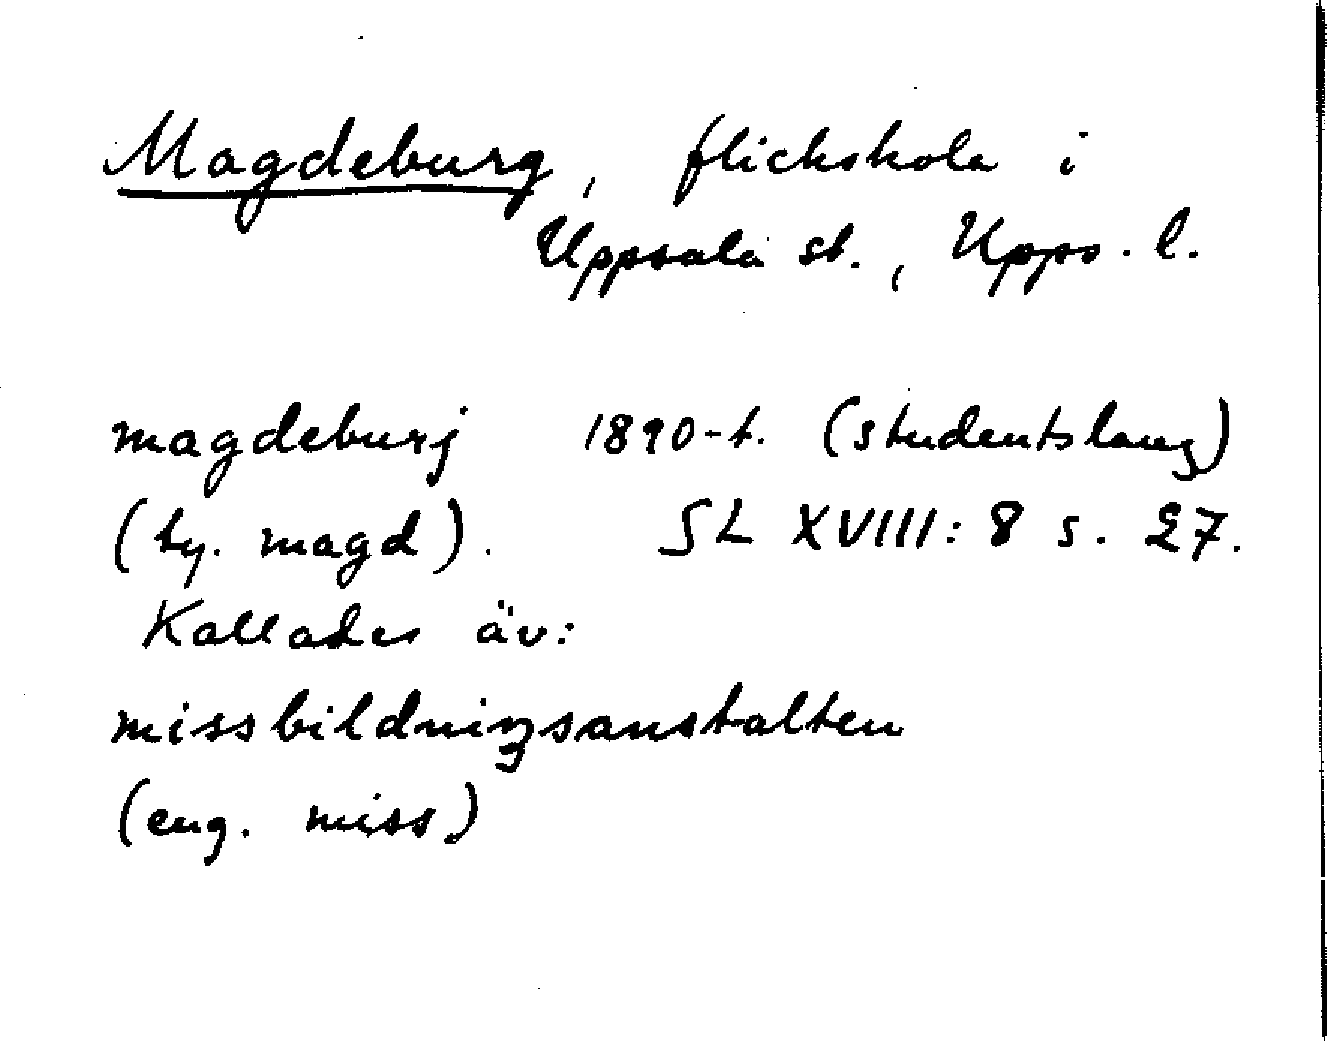 Magdeburg, flickskola i
Uppsala st., Upps. l.
magdeburj 1890-t. (studentslaŋ)
(ty. magd). SL XVIII: 8 s. 27.
Kallades äv:
missbildniŋsanstalten
(eng. miss)